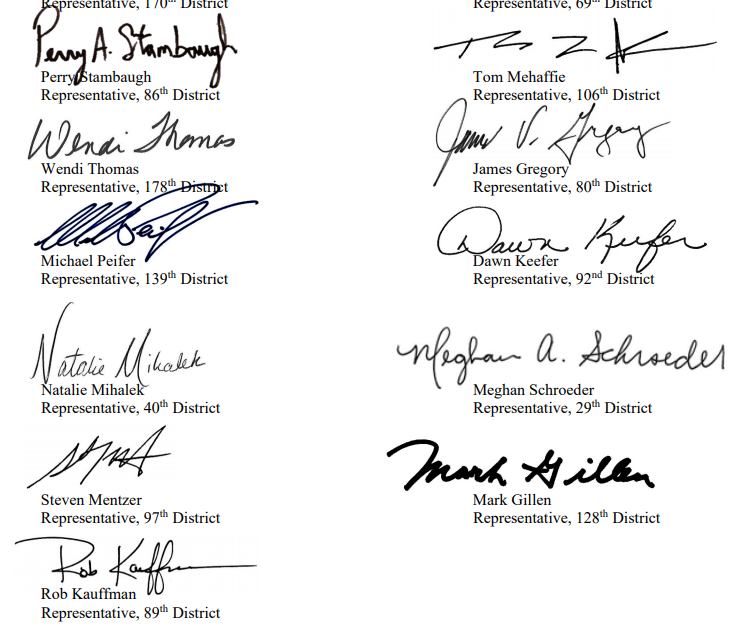 Representative, 170th District
Representative, 69th District
Perry A. Stambaugh
Perry Stambaugh
Representative, 86th District
Tom Mehaffie
Representative, 106th District
Wendi Thomas
Wendi Thomas
Representative, 178th District
James V. Gregory
James Gregory
Representative, 80th District
Michael Peifer
Representative, 139th District
Dawn Keefer
Dawn Keefer
Representative, 92nd District
Natalie Mihalek
Natalie Mihalek
Representative, 40th District
Meghan A. Schroeder
Meghan Schroeder
Representative, 29th District
Steven Mentzer
Representative, 97th District
Mark Gillen
Mark Gillen
Representative, 128th District
Rob Kauffman
Rob Kauffman
Representative, 89th District